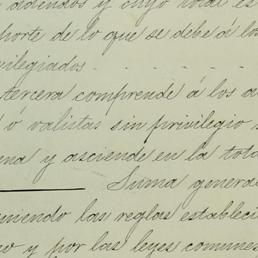 adendos y cuyo total es
porte de lo que se debe á lo
vilegiados
tercera comprende á los a
ó valistas sin privilegio
na y asciende en la tota
Suma general
niendo las reglas estableci
o y por las leyes comunes